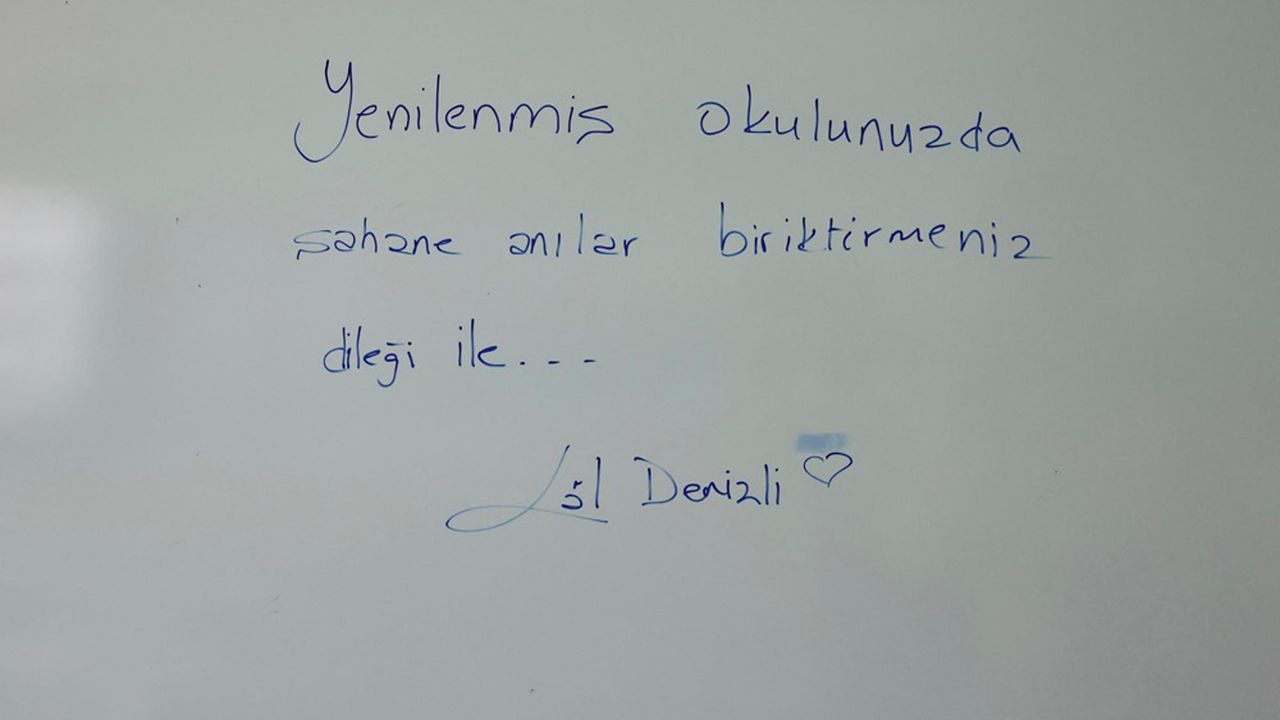 Yenilenmiş okulunuzda
şahane anılar biriktirmeniz
dileği ile...
Denizli ♡